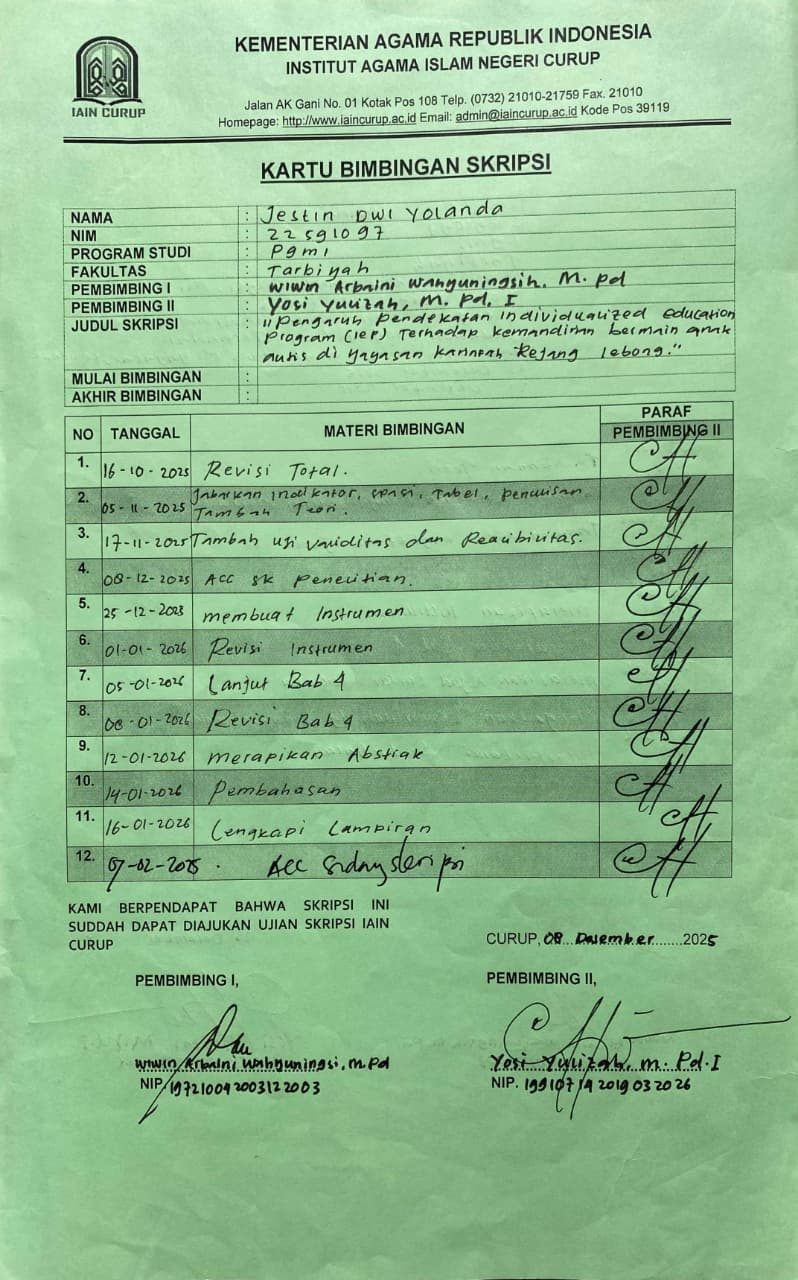 IAIN CURUP
KEMENTERIAN AGAMA REPUBLIK INDONESIA
INSTITUT AGAMA ISLAM NEGERI CURUP
Jalan AK Gani No. 01 Kotak Pos 108 Telp. (0732) 21010-21759 Fax. 21010
Homepage: http://www.iaincurup.ac.id Email: admin@iaincurup.ac.id Kode Pos 39119
KARTU BIMBINGAN SKRIPSI
NAMA : Jestin Dwi Yolanda
NIM : 22591097
PROGRAM STUDI : Pgmi
FAKULTAS : Tarbiyah
PEMBIMBING I : Wiwin Arbaini Wahyuningsih, M. Pd
PEMBIMBING II : Yosi Yulizah, M. Pd. I
JUDUL SKRIPSI : "Pengaruh Pendekatan Individualized Education
Program (IEP) Terhadap Kemandirian bermain anak
autis di Yayasan Rejang Lebong."
MULAI BIMBINGAN :
AKHIR BIMBINGAN :
NO TANGGAL MATERI BIMBINGAN PARAF
PEMBIMBING II
1. 16-10-2025 Revisi Total.
2. 05-11-2025 Jabarkan indikator, spasi, Tabel, penulisan
Tambah Teori.
3. 17-11-2025 Tambah uji validitas dan Realibilitas.
4. 08-12-2025 ACC SK Penelitian.
5. 25-12-2025 membuat Instrumen
6. 01-01-2026 Revisi Instrumen
7. 05-01-2026 Lanjut Bab 4
8. 08-01-2026 Revisi Bab 4
9. 12-01-2026 merapikan Abstrak
10. 14-01-2026 Pembahasan
11. 16-01-2026 Lengkapi Lampiran
12. 07-02-2025. Acc Sidang skripsi
KAMI BERPENDAPAT BAHWA SKRIPSI INI
SUDDAH DAPAT DIAJUKAN UJIAN SKRIPSI IAIN
CURUP
CURUP, 08 Desember 2025
PEMBIMBING I, PEMBIMBING II,
Wiwin Arbaini Wahyuningsi, M.Pd Yosi Yulizah, M. Pd. I
NIP. 197210042003122003 NIP. 199107142019032026